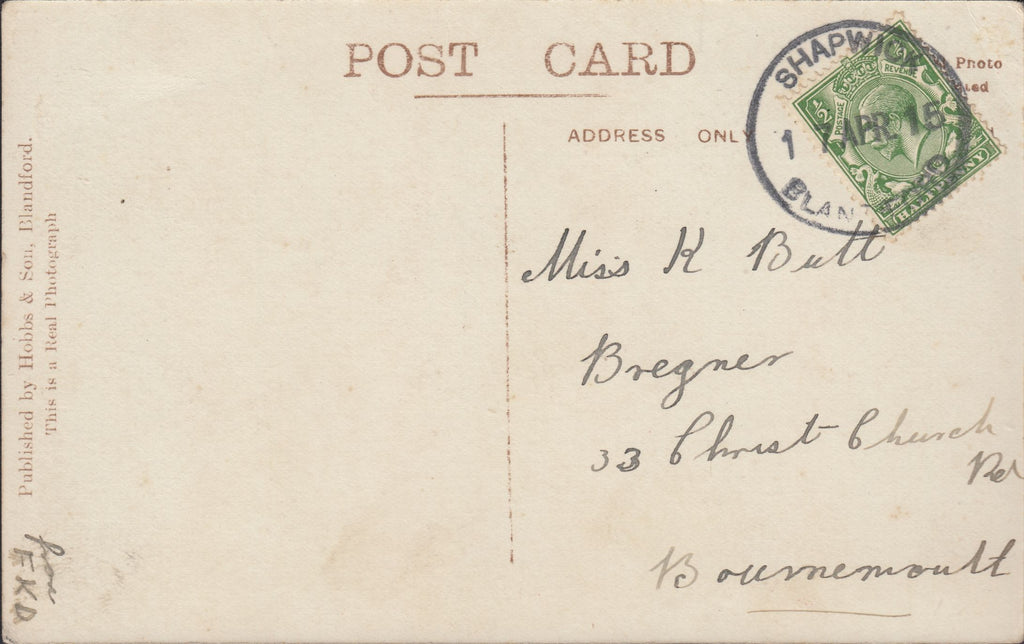 POST CARD
ADDRESS ONLY
Photo
SHAPWICK
1 7 APR 15
REVENUE
POSTAGE
½
HALFPENNY
Miss K Butt
Bregner
33 Christ Church
Rd
Bournemoutt
Published by Hobbs & Son, Blandford.
This is a Real Photograph
from
E K D